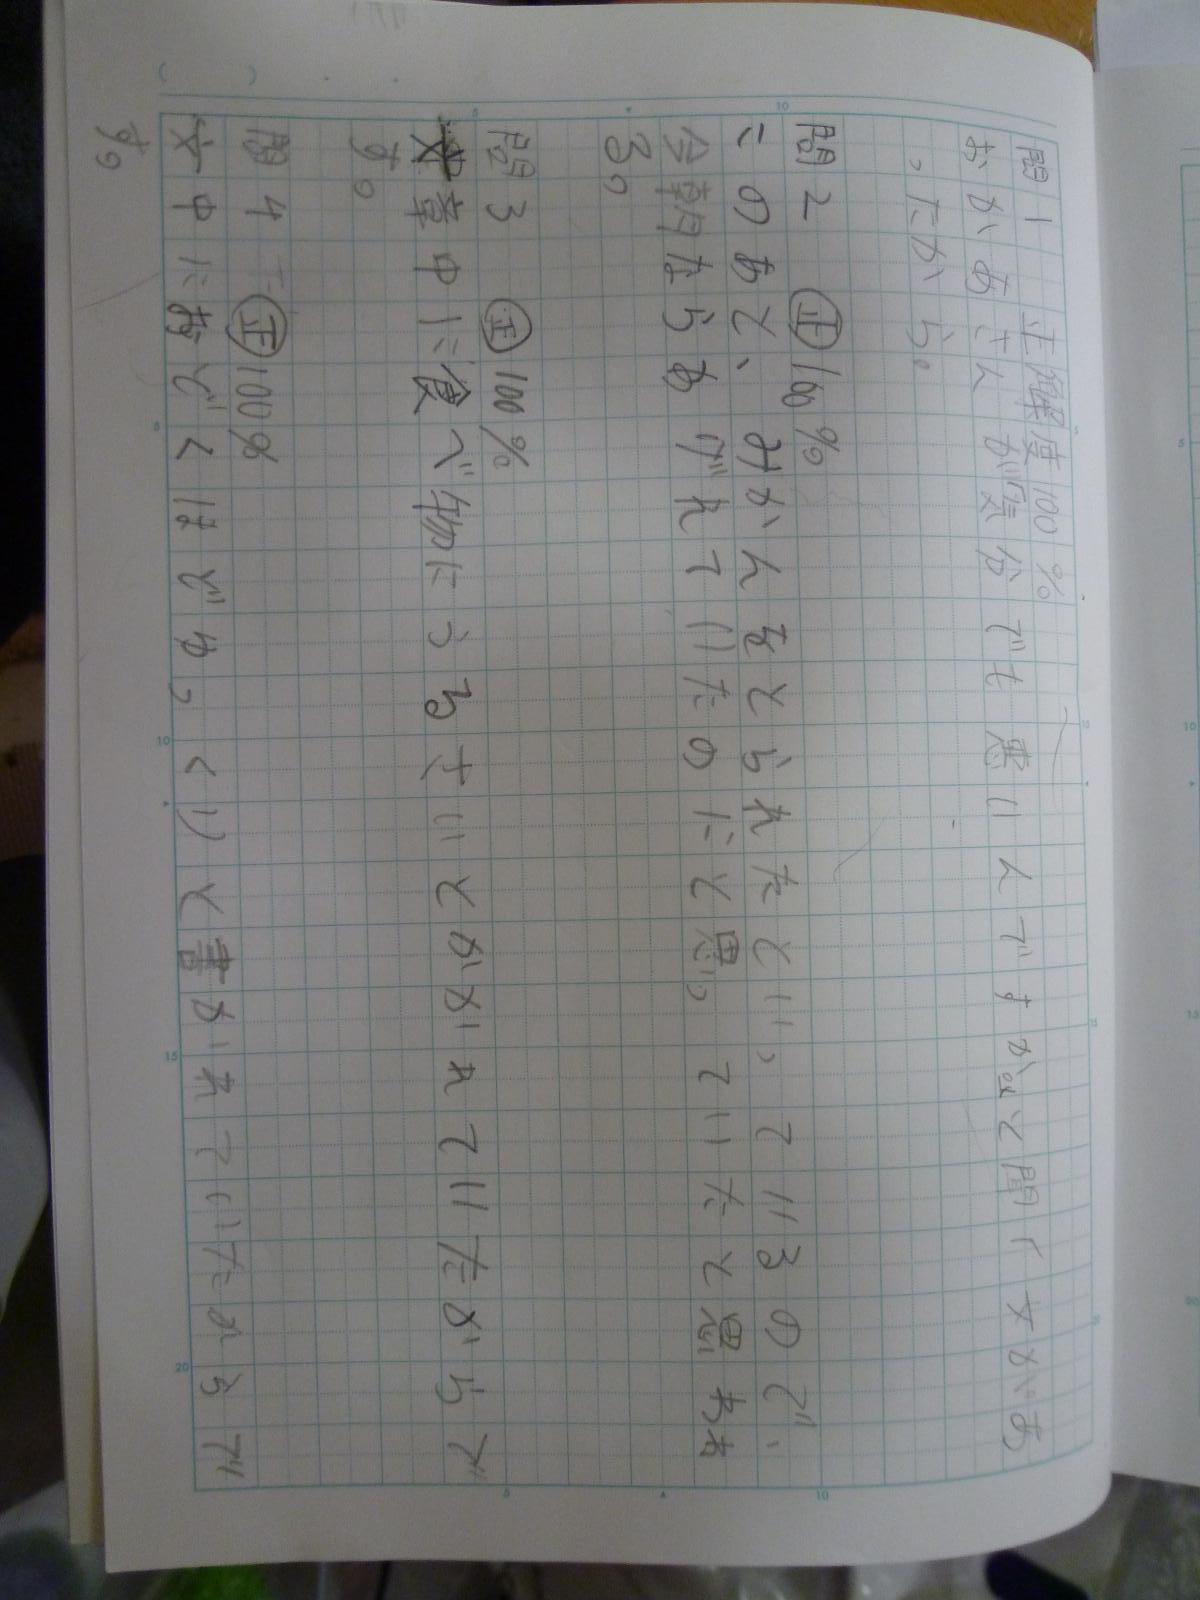 問1 正解度100%
おかあさんが気分でも悪いんですか。と聞く文があ
ったから。
問2 ㊣100%
このあと、みかんをとられたといっているので、
今朝ならあげれていたのにと思っていたと思われ
る。
問3 ㊣100%
文章中に食べ物にうるさいとかかれていたからで
す。
問4 ㊣100%
文中におどくほどゆっくりと書かれていたからで
す。